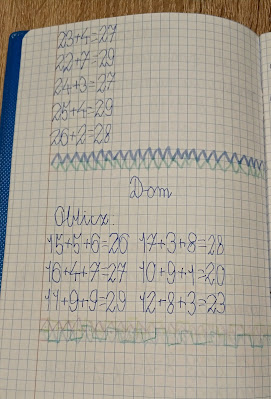 23+4=27
22+7=29
24+3=27
25+4=29
26+2=28
Dom
Oblicz:
15+5+6=26 17+3+8=28
16+4+7=27 10+9+1=20
11+9+9=29 12+8+3=23